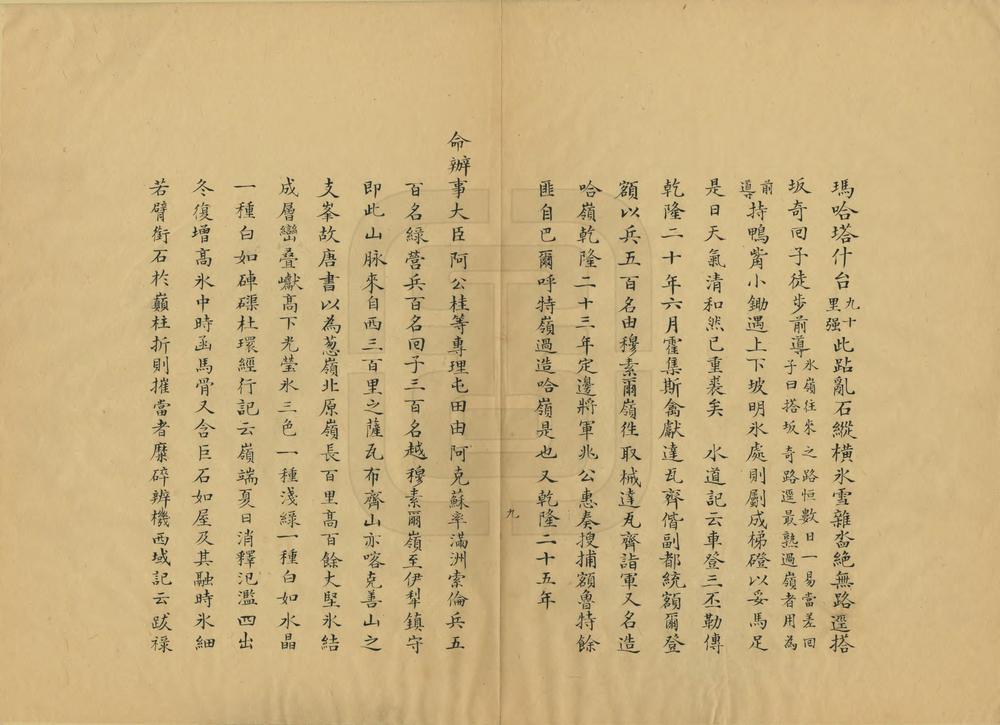 瑪哈塔什台九十里强此跕亂石縱横氷雪雜沓絶無路逕搭
坂奇回子徒步前導氷嶺往來之路恒數日一易當差回子曰搭坂奇路逕最熟過嶺者用為
前導持鴨觜小鋤遇上下坡明氷處則劚成梯磴以妥馬足
是日天氣清和然已重裘矣　水道記云車登三丕勒傳
乾隆二十年六月霍集斯禽獻達瓦齊偕副都統額爾登
額以兵五百名由穆素爾嶺徃取械達瓦齊詣軍又名造
哈嶺乾隆二十三年定邊將軍兆公惠奏搜捕額魯特餘
匪自巴爾呼特嶺過造哈嶺是也又乾隆二十五年
九
命辦事大臣阿公桂等專理屯田由阿克蘇率滿洲索倫兵五
百名綠營兵百名回子三百名越穆素爾嶺至伊犁鎮守
即此山脉來自西三百里之薩瓦布齊山亦喀克善山之
支峯故唐書以為葱嶺北原嶺長百里高百餘丈堅氷結
成層巒疊巘高下光瑩氷三色一種淺綠一種白如水晶
一種白如硨磲杜環經行記云嶺端夏日消釋氾濫四出
冬復增高氷中時函馬骨又含巨石如屋及其融時氷細
若臂銜石於巔柱折則摧當者糜碎辨機西域記云跋祿